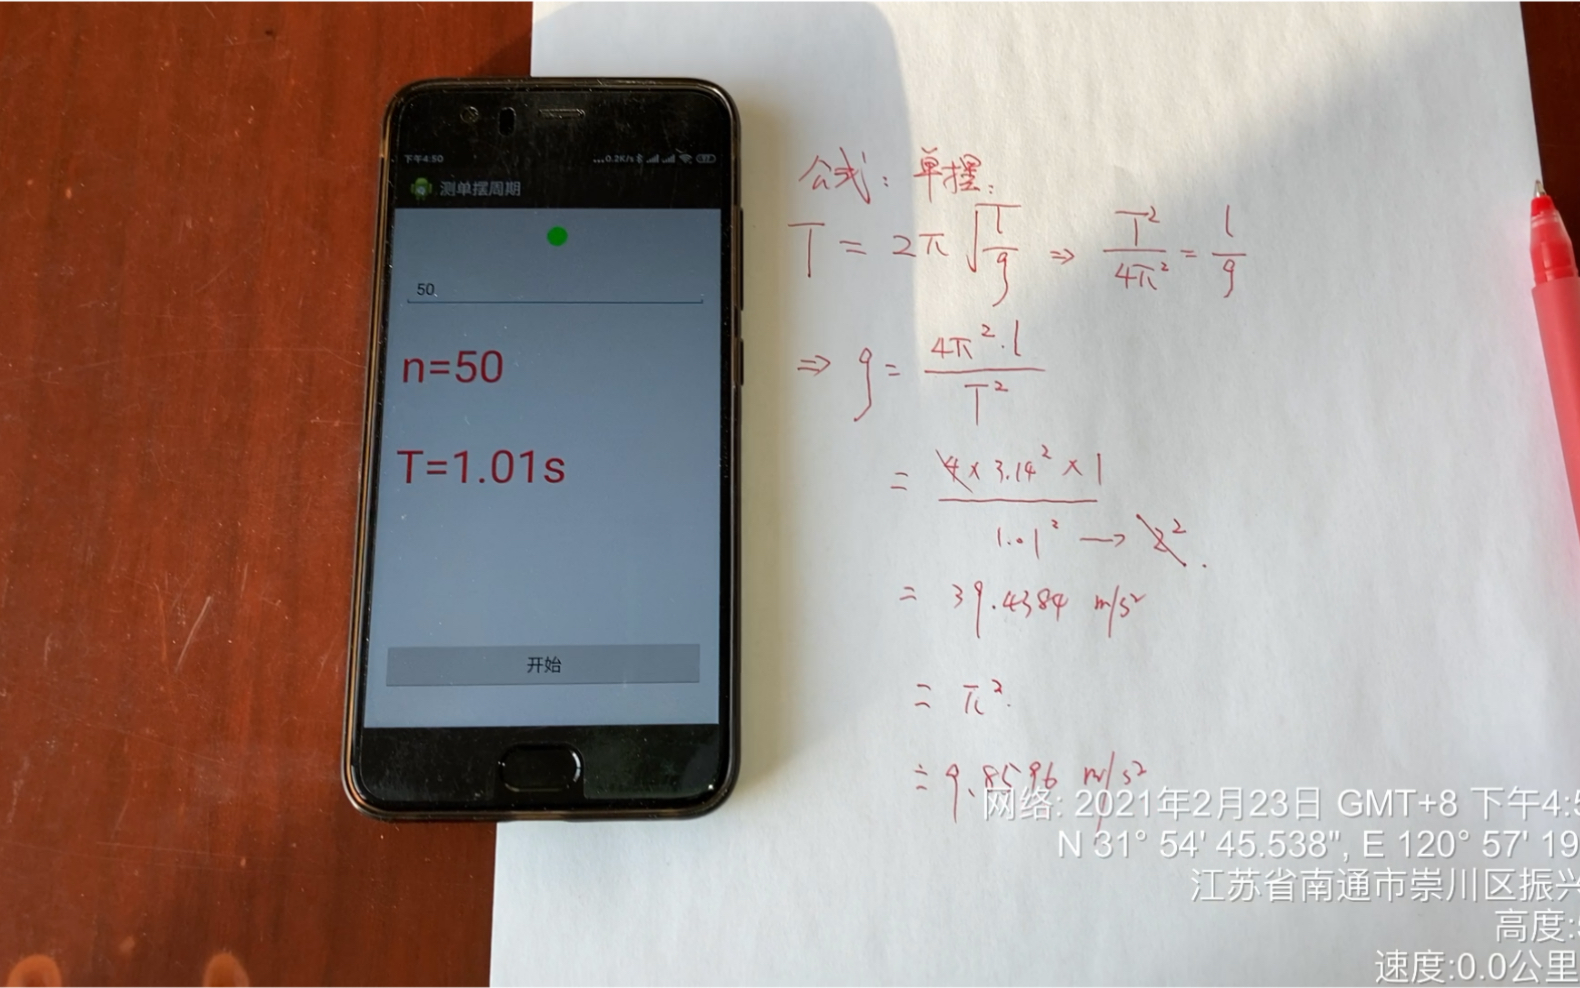 下午4:50
...0.2K/s
测单摆周期
50
n=50
T=1.01s
开始
公式: 单摆:
T = 2π√(l/g) ⇒ T²/4π² = l/g
⇒ g = 4π²·l/T²
= 4×3.14²×1/1.01² → 2².
= 39.4384 m/s²
= π².
= 9.8596 m/s²
网络: 2021年2月23日 GMT+8 下午4:5
N 31° 54' 45.538", E 120° 57' 19
江苏省南通市崇川区振兴
高度:
速度:0.0公里